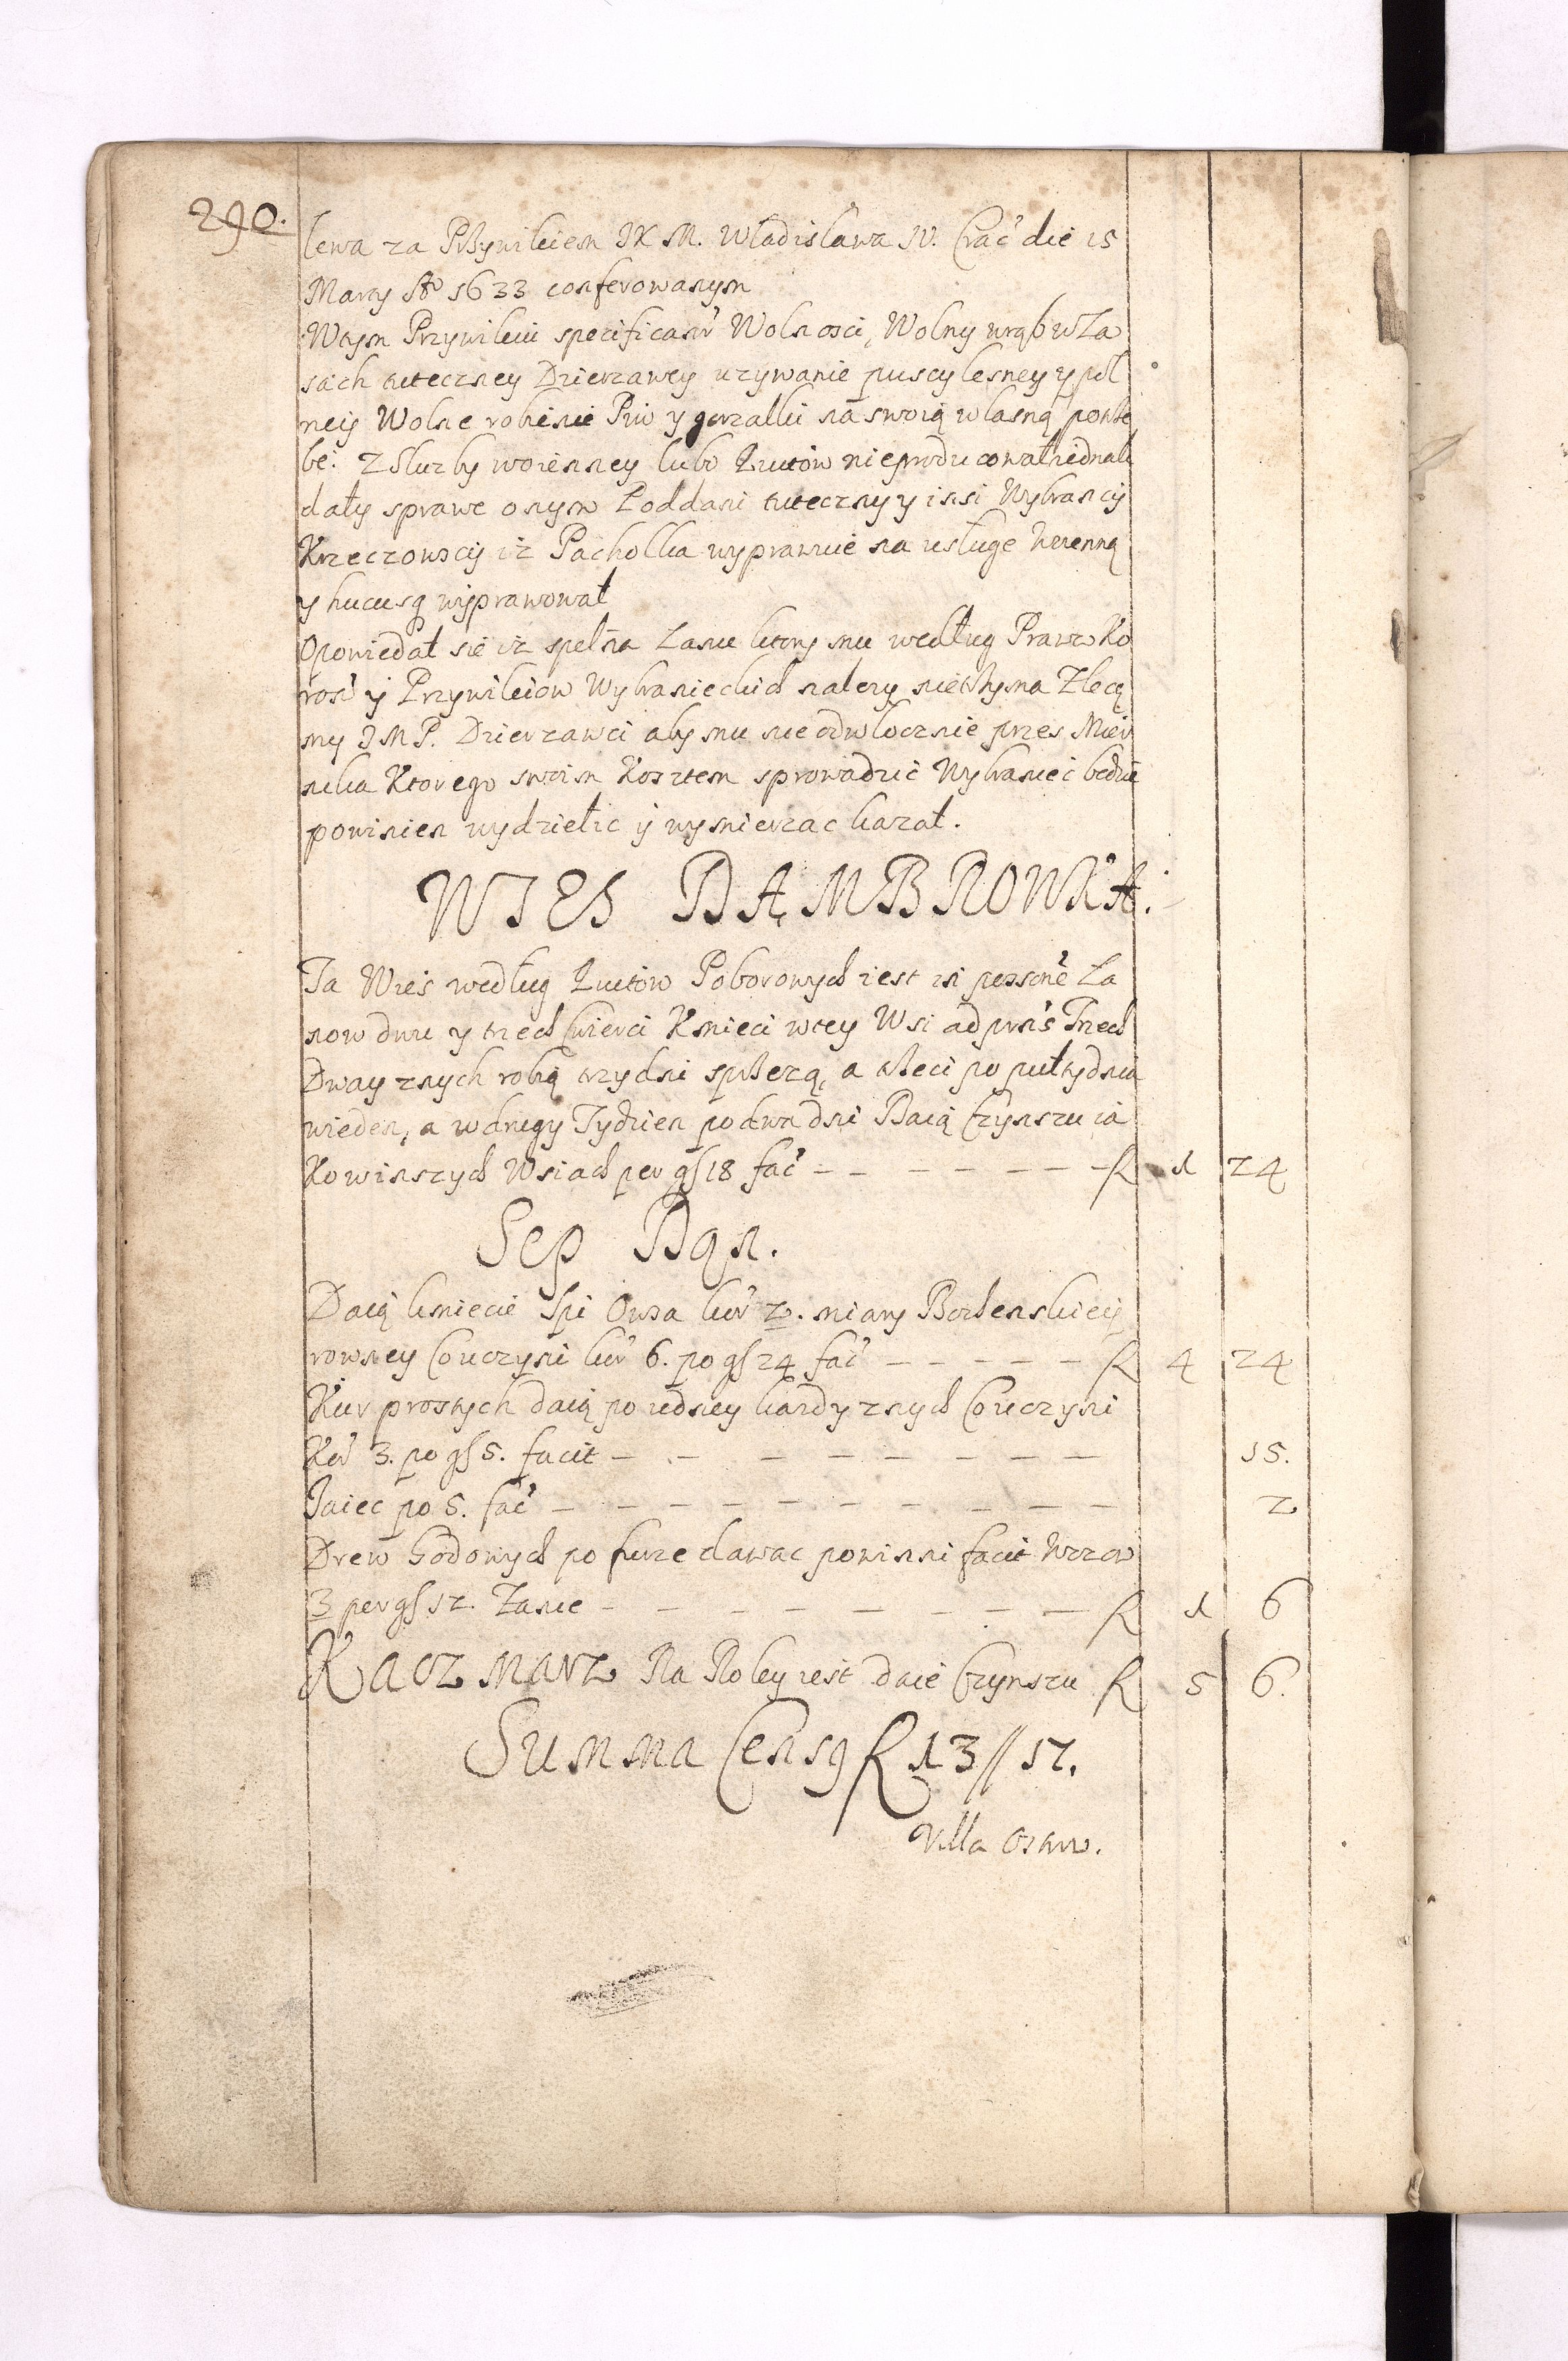 290.
lewa za Przywileiem JKM. Wladislawa IV. Crac̃ die 15
Marty A⁰ 1633 conferowanym
Wtym Przywileiu specificant᷑ Wolnosci, Wolny wrąb w La
sach tuteczney Dzierzawy uzywanie puscy lesney y pol
neij Wolne robienie Piw y gorzalki na swoią wlasną potrze
bę. Z Sluzby woienney lubo kwitow nieproducowal iednak
daly sprawe onym Poddani tuteczny y insi Wybrancij
Krzeczowscij iż Pachollka wyprawuie na usługe woienną
y hucusq wyprawował
Opowiedał sie iż spelna Lanu ktory mu według Praw Ko
ron̄ ÿ Przywileiow Wybranieckich nalezy nietrzyma Zlecą
my JMP. Dzierzawci aby mu nieodwlocznie przes Mier
nika Ktorego swoim Kosztem sprowadzić Wybraniec będzie
powinien wydzielic ÿ wymierzac kazał.
WIES DĄMBROWKA.
Ta Wies według kwitow Poborowych iest in personē La
now dwu y trzech cwierci Kmieci wtey Wsi ad prn̄s Trzech
Dway znych robią trzy dni sprzezą, a trzeci po pułtydnia
wieden, a w drugy Tydzien po dwa dni Daią Czynszu ia
Ko winszych Wsiach per gſ 18 fac̃ — — — — — — — f 1 24
Sep Dan̄.
Daią kmiecie Spi Owsa kor̃ 2. miary Bochenskieij
rowney Couczyni kor̃ 6. po gſ 24 fac̃ — — — — — f 4 24
Kur prostych daią po iedney kazdy znych Couczyni
Kur̃ 3. po gſ 5. facit — — — — — — — — 15.
Jaiec po 5. fac̃ — — — — — — — — — — 2
Drew Godowych po furze dawac powinni facit Wozow
3 per gſ 12. Zanie — — — — — — — — — f 1 6
Kaczmarz Na Roley iest daie Czynszu f 5 6.
Summa Censq f 13 // 12.
Villa